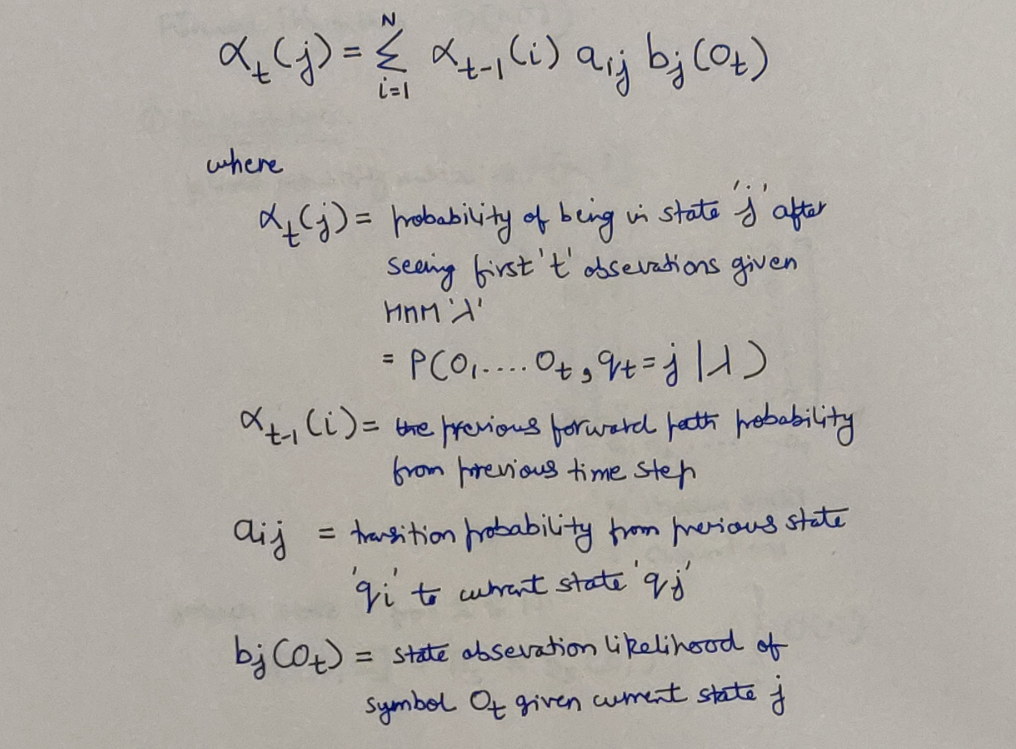 α_t(j) = Σ_{i=1}^{N} α_{t-1}(i) a_{ij} b_j(O_t)
where
α_t(j) = probability of being in state 'j' after
seeing first 't' obsevations given
HMM 'λ'
= P(O_1.... O_t, q_t = j | λ)
α_{t-1}(i) = the previous forward path probability
from previous time step
a_{ij} = transition probability from previous state
'qi' to current state 'qj'
b_j(O_t) = state obsevation likelihood of
symbol O_t given current state j